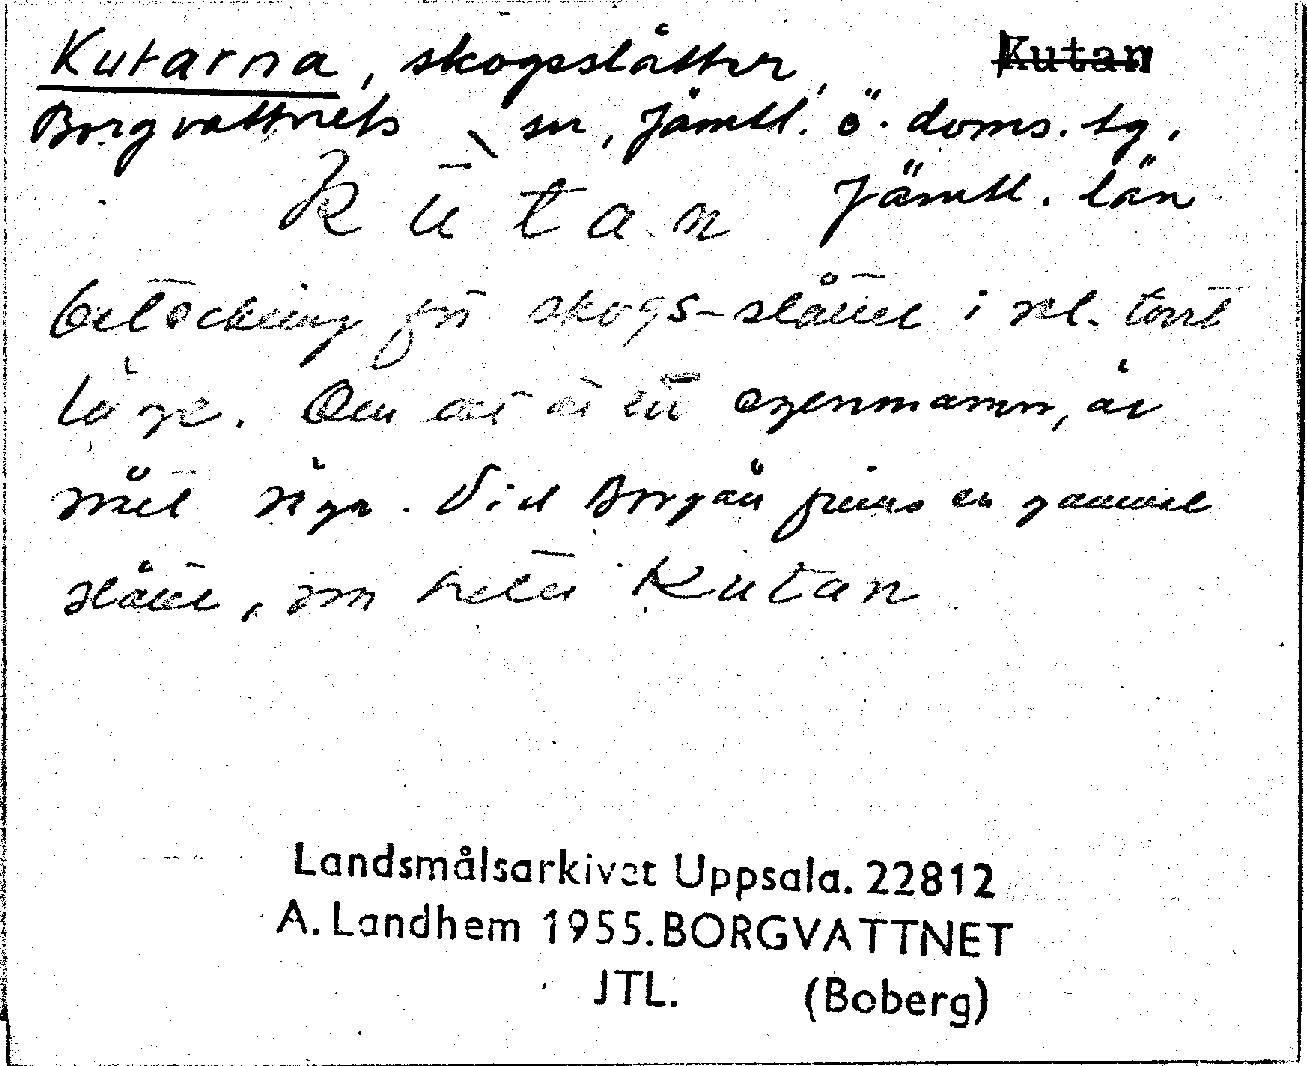 Kutarna, skogsslåtter, Kutan
Borgvattnets sn, Jämtl. ö. doms. tg,
Jämtl. län
Kūtan
beteckning för skogs-slåtter i rel. torrt
läge. Om det är ett egennamn, är
svårt säga. Vid Borgån finns en gammal
slåtter, som heter Kutan
Landsmålsarkivet Uppsala. 22812
A. Landhem 1955. BORGVATTNET
JTL. (Boberg)